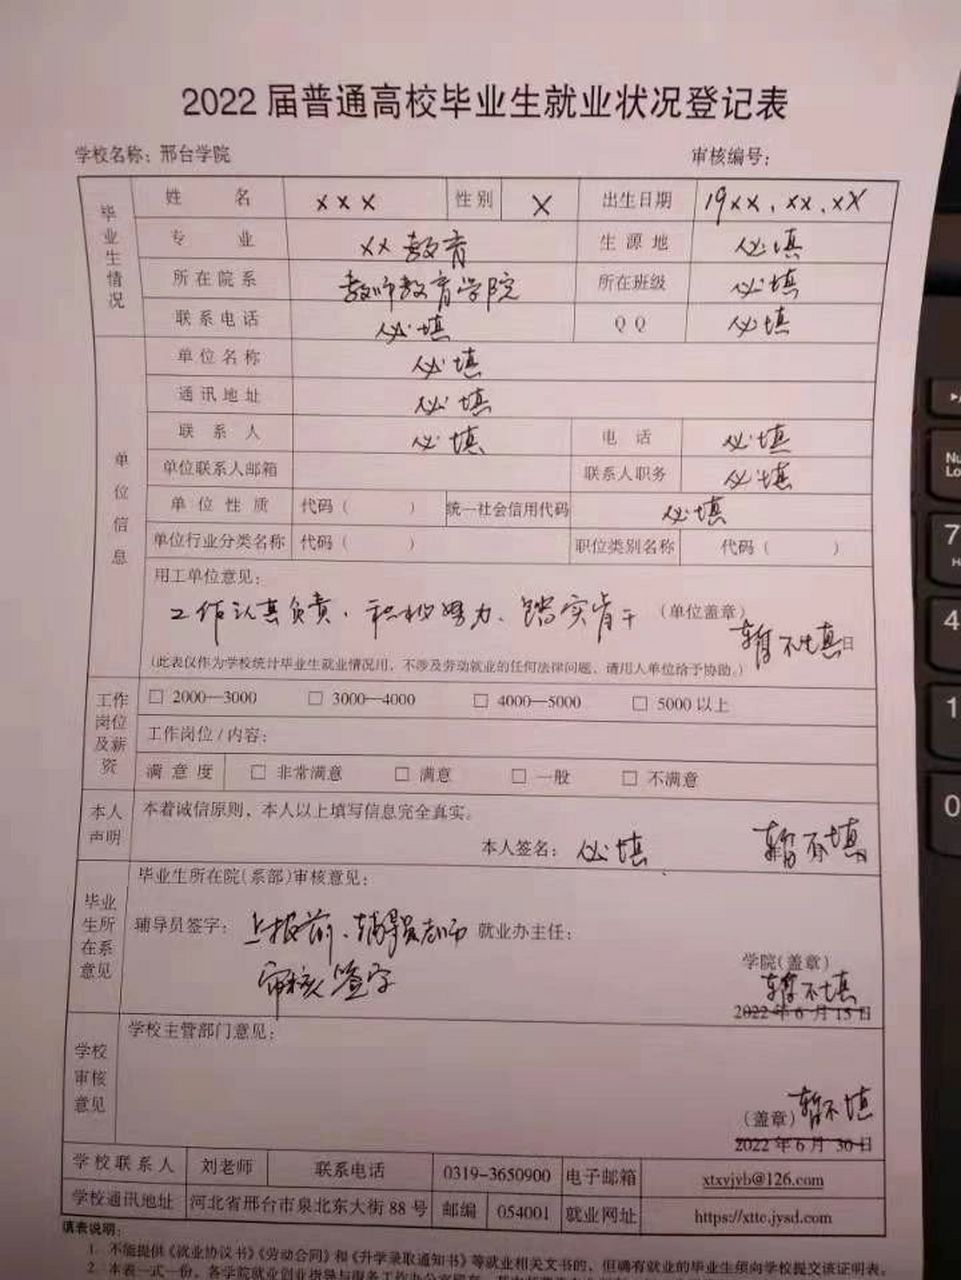 2022 届普通高校毕业生就业状况登记表
学校名称：邢台学院 审核编号：
毕业生情况
姓 名 xxx 性别 X 出生日期 19xx.xx.xx
专 业 xx教育 生源地 必填
所在院系 教师教育学院 所在班级 必填
联系电话 必填 QQ 必填
单位信息
单位名称 必填
通讯地址 必填
联系人 必填 电话 必填
单位联系人邮箱 联系人职务 必填
单位性质 代码（ ） 统一社会信用代码 必填
单位行业分类名称 代码（ ） 职位类别名称 代码（ ）
用工单位意见：
工作认真负责、积极努力、踏实肯干 （单位盖章）
暂不填 日
（此表仅作为学校统计毕业生就业情况用，不涉及劳动就业的任何法律问题，请用人单位给予协助。）
工作岗位及薪资
□ 2000—3000 □ 3000—4000 □ 4000—5000 □ 5000 以上
工作岗位 / 内容：
满意度 □ 非常满意 □ 满意 □ 一般 □ 不满意
本人声明
本着诚信原则，本人以上填写信息完全真实。
本人签名：必填 暂不填
毕业生所在系意见
毕业生所在院（系部）审核意见：
辅导员签字：上报前、辅导员老师 就业办主任：
审核签字
学院（盖章）
暂不填
2022 年 6 月 15 日
学校审核意见
学校主管部门意见：
（盖章）暂不填
2022 年 6 月 30 日
学校联系人 刘老师 联系电话 0319-3650900 电子邮箱 xtxyjyb@126.com
学校通讯地址 河北省邢台市泉北东大街 88 号 邮编 054001 就业网址 https://xttc.jysd.com
填表说明：
1. 不能提供《就业协议书》《劳动合同》和《升学录取通知书》等就业相关文书的，但确有就业的毕业生须向学校提交该证明表。
2. 本表一式一份，各学院就业创业指导与服务工作办公室